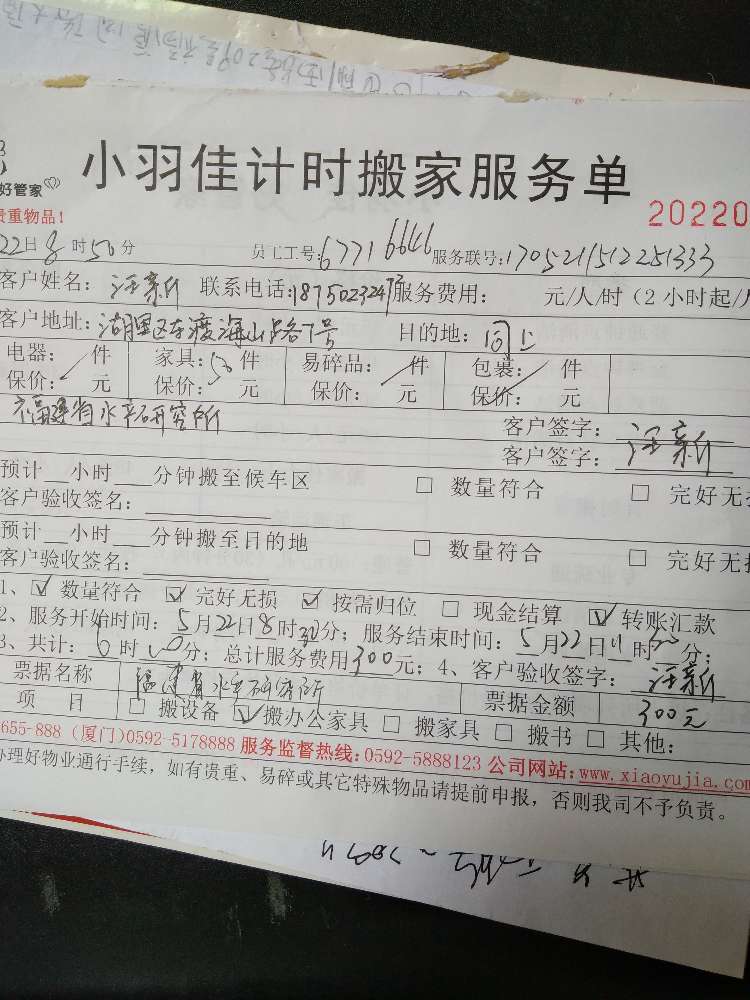 好管家
小羽佳计时搬家服务单
贵重物品!
20220
22日8时50分 员工工号:6771 6646 服务联号:1705211512251333
客户姓名: 汪新 联系电话: 服务费用: 元/人/时(2小时起/
客户地址:湖里区东渡海山路7号 目的地:同上
电器: 件 家具:50件 易碎品: 件 包裹: 件
保价: 元 保价: 元 保价: 元 保价: 元
福建省水产研究所
客户签字: 汪新
客户签字:
预计__小时___分钟搬至候车区 □ 数量符合 □ 完好无
客户验收签名:
预计__小时___分钟搬至目的地 □ 数量符合 □ 完好无
客户验收签名:
1、☑ 数量符合 ☑ 完好无损 ☑ 按需归位 □ 现金结算 ☑ 转账汇款
2、服务开始时间:5月22日8时30分;服务结束时间:5月22日11时 分;
3、共计:6时00分;总计服务费用300元;4、客户验收签字:汪新
票据名称 福建省水产研究所 票据金额 300元
项 目 □ 搬设备 ☑ 搬办公家具 □ 搬家具 □ 搬书 □ 其他:
655-888 (厦门)0592-5178888 服务监督热线:0592-5888123 公司网站:www.xiaoyujia.com
办理好物业通行手续,如有贵重、易碎或其它特殊物品请提前申报,否则我司不予负责。